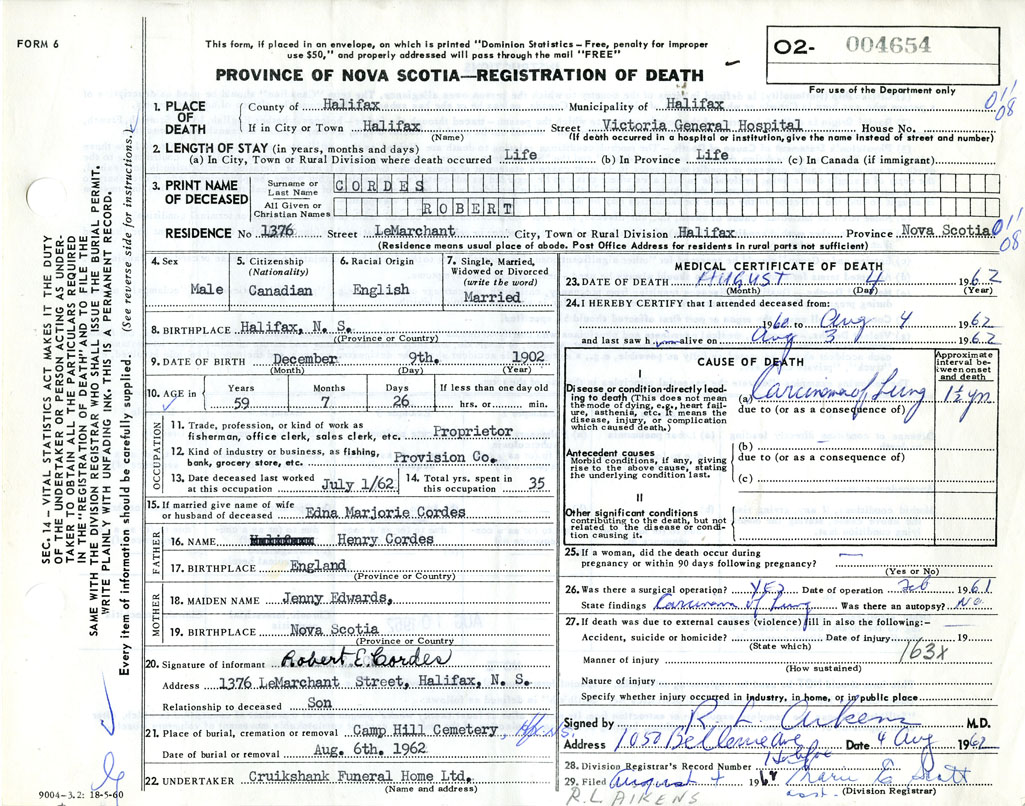 FORM 6
This form, if placed in an envelope, on which is printed "Dominion Statistics – Free, penalty for improper
use $50," and properly addressed will pass through the mail "FREE"
PROVINCE OF NOVA SCOTIA—REGISTRATION OF DEATH
O2- 004654
For use of the Department only
01'
08
1. PLACE OF DEATH
County of Halifax Municipality of Halifax
If in City or Town Halifax Street Victoria General Hospital House No.
(Name) (If death occurred in a hospital or institution, give the name instead of street and number)
2. LENGTH OF STAY (in years, months and days)
(a) In City, Town or Rural Division where death occurred Life (b) In Province Life (c) In Canada (if immigrant)
3. PRINT NAME OF DECEASED
Surname or Last Name CORDES
All Given or Christian Names ROBERT
RESIDENCE No 1376 Street LeMarchant City, Town or Rural Division Halifax Province Nova Scotia
01'
08
(Residence means usual place of abode. Post Office Address for residents in rural parts not sufficient)
4. Sex
Male
5. Citizenship
(Nationality)
Canadian
6. Racial Origin
English
7. Single, Married,
Widowed or Divorced
(write the word)
Married
8. BIRTHPLACE Halifax, N. S.
(Province or Country)
9. DATE OF BIRTH December 9th. 1902
(Month) (Day) (Year)
10. AGE in
Years Months Days If less than one day old
59 7 26 hrs. or min.
OCCUPATION
11. Trade, profession, or kind of work as
fisherman, office clerk, sales clerk, etc. Proprietor
12. Kind of industry or business, as fishing,
bank, grocery store, etc. Provision Co.
13. Date deceased last worked
at this occupation July 1/62
14. Total yrs. spent in
this occupation 35
15. If married give name of wife
or husband of deceased Edna Marjorie Cordes
FATHER
16. NAME Halifax Henry Cordes
17. BIRTHPLACE England
(Province or Country)
MOTHER
18. MAIDEN NAME Jenny Edwards,
19. BIRTHPLACE Nova Scotia
(Province or Country)
20. Signature of informant Robert E. Cordes
Address 1376 LeMarchant Street, Halifax, N. S.
Relationship to deceased Son
21. Place of burial, cremation or removal Camp Hill Cemetery, Hfx. N.S.
Date of burial or removal Aug. 6th. 1962
22. UNDERTAKER Cruikshank Funeral Home Ltd.
(Name and address)
MEDICAL CERTIFICATE OF DEATH
23. DATE OF DEATH August 4 1962
(Month) (Day) (Year)
24. I HEREBY CERTIFY that I attended deceased from:
1960 to Aug 4 1962
and last saw him alive on Aug 3 1962
CAUSE OF DEATH
Approximate
interval between onset
and death
I
Disease or condition directly leading
to death (This does not mean
the mode of dying, e.g., heart failure,
asthenia, etc. It means the
disease, injury, or complication
which caused death.)
(a) Carcinoma of Lung 1½ yrs
due to (or as a consequence of)
Antecedent causes
Morbid conditions, if any, giving
rise to the above cause, stating
the underlying condition last.
(b) –
due to (or as a consequence of)
(c)
II
Other significant conditions
contributing to the death, but not
related to the disease or condition
causing it.
25. If a woman, did the death occur during
pregnancy or within 90 days following pregnancy? —
(Yes or No)
26. Was there a surgical operation? YES Date of operation Feb 1961
State findings Carcinoma of Lung Was there an autopsy? No
27. If death was due to external causes (violence) fill in also the following:–
Accident, suicide or homicide? Date of injury 19
(State which)
163X
Manner of injury
(How sustained)
Nature of injury
Specify whether injury occurred in industry, in home, or in public place
Signed by R. L. Aikens M.D.
Address 1050 Bellevue Ave Date 4 Aug 1962
Halifax
28. Division Registrar's Record Number
29. Filed August 7 1962 Marie E Scott
asst. (Division Registrar)
R.L AIKENS
SEC. 14 – VITAL STATISTICS ACT MAKES IT THE DUTY
OF THE UNDERTAKER OR PERSON ACTING AS UNDERTAKER
"TO OBTAIN ALL THE PARTICULARS REQUIRED
IN THE "REGISTRATION OF DEATH" AND TO FILE THE
SAME WITH THE DIVISION REGISTRAR WHO SHALL ISSUE THE BURIAL PERMIT.
WRITE PLAINLY WITH UNFADING INK. THIS IS A PERMANENT RECORD.
Every item of information should be carefully supplied. (See reverse side for instructions.)
9004–3.2: 18-5-60